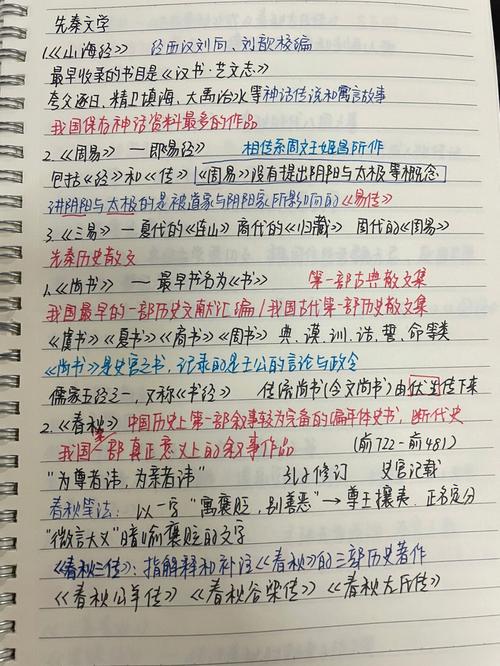 先秦文学
1.《山海经》 经西汉刘向、刘歆校编
最早收录的书目是《汉书·艺文志》
夸父逐日、精卫填海、大禹治水等神话传说和寓言故事
我国保存神话资料最多的作品
2.《周易》 — 即易经》 相传系周文王姬昌所作
包括《经》和《传》 《周易》没有提出阴阳与太极等概念
讲阴阳与太极的是被道家与阴阳家所影响的《易传》
3.《三易》 — 夏代的《连山》 商代的《归藏》 周代的《周易》
先秦历史散文
1.《尚书》 — 最早书名为《书》 第一部古典散文集
我国最早的一部历史文献汇编/我国古代第一部历史散文集
《虞书》《夏书》《商书》《周书》 典、谟、训、诰、誓、命等类
《尚书》是史官之书,记录的是王公的言论与政令
儒家五经之一,又称《书经》 传流尚书(今文尚书)由伏生传下来
2.《春秋》 中国历史上第一部叙事较为完备的编年体史书,断代史
我国第一部真正意义上的叙事作品 (前722-前481)
"为尊者讳,为亲者讳" 孔子修订 史官记载
春秋笔法: 以一字"寓褒贬,别善恶"→尊王攘夷、正名定分
"微言大义"暗喻褒贬的文字
《春秋三传》:指解释和补注《春秋》的三部历史著作
《春秋公羊传》《春秋谷梁传》《春秋左氏传》